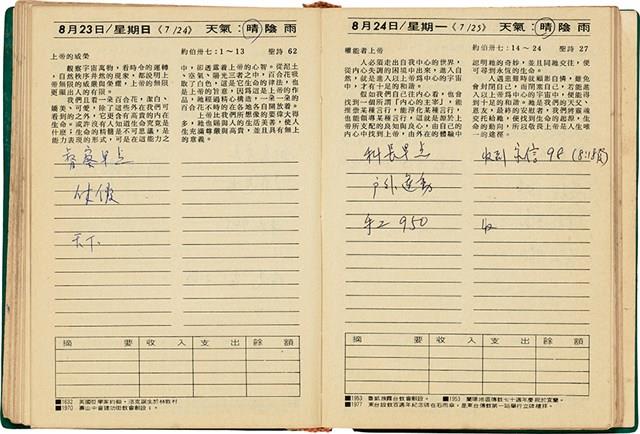 8月23日/星期日《7/24》 天氣:晴陰雨
上帝的威榮 約伯卅七:1~13 聖詩 62
觀察宇宙萬物,看時令的運轉
,自然秩序井然的現象,都說明上
帝無限的威嚴與榮耀,上帝的無限
更顯出人的有限。
我們且看一朵百合花,潔白、
嬌美、可愛,除了這些外在我們可
看到的之外,它更含有高貴的內在
生命。或許沒有人知道生命究竟是
什麼;生命的精髓是不可思議,是
能力表現的形式,可是在這能力之
中,卻透露着上帝的心智。從泥土
、空氣、陽光三者之中,百合花吸
取了白色,這是它生命的律法,也
是上帝的旨意,因為這是上帝的作
品,一朵一朵的
百合花不時的在各地各自開放着。
上帝比我們所想像的要偉大得
多,祂也賜與人們生活美善,使人
生充滿尊嚴與高貴,並且具有無上
的意義。
督察早点
休假
天下
摘要 收入 支出 餘額
■1632 英國哲學家約翰‧洛克誕生於林敦村
■1970 壽山中會建功街教會創設。
8月24日/星期一《7/25》 天氣:晴陰雨
權能者上帝 約伯卅七:14~24 聖詩 27
人必須走出自我中心的世界,
從內心失調的困境中出來,進入自
然,就是進入以上帝為中心的宇宙
中,才有十足的和諧。
假如我們自己往內心看,也會
找到一個所謂「內心的主宰」,能
拒崇某種言行,能淨化某種言行,
也能倡導某種言行,這就是源於上
帝所支配的良知與良心。由自己的
內心中找到上帝,由外在的體驗中
認明祂的奇妙,並且同祂交往,便
可尋到永恆的生命。
人遇重難時就顧影自憐,難免
會封閉自己,而閉塞自己,若能進
入以上帝為中心的宇宙中,便能得
到十足的和諧。祂是我們的天父、
恩友、最終的安慰者,我們將靈魂
交托給祂,便找到生命的起源,生
命的動向,所以敬畏上帝是人生唯
一的途徑。
科長早点
戶外運動
手工 950
收到 宗信 98 (8:18發)
收
摘要 收入 支出 餘額
■1953 魯凱族霧台教會創設。 ■1953 蘭陽地區傳教七十週年慶祝於宜蘭。
■1977 東台設教百週年紀念碑在石雨傘,是東台傳教第一站舉行立碑禮拜。